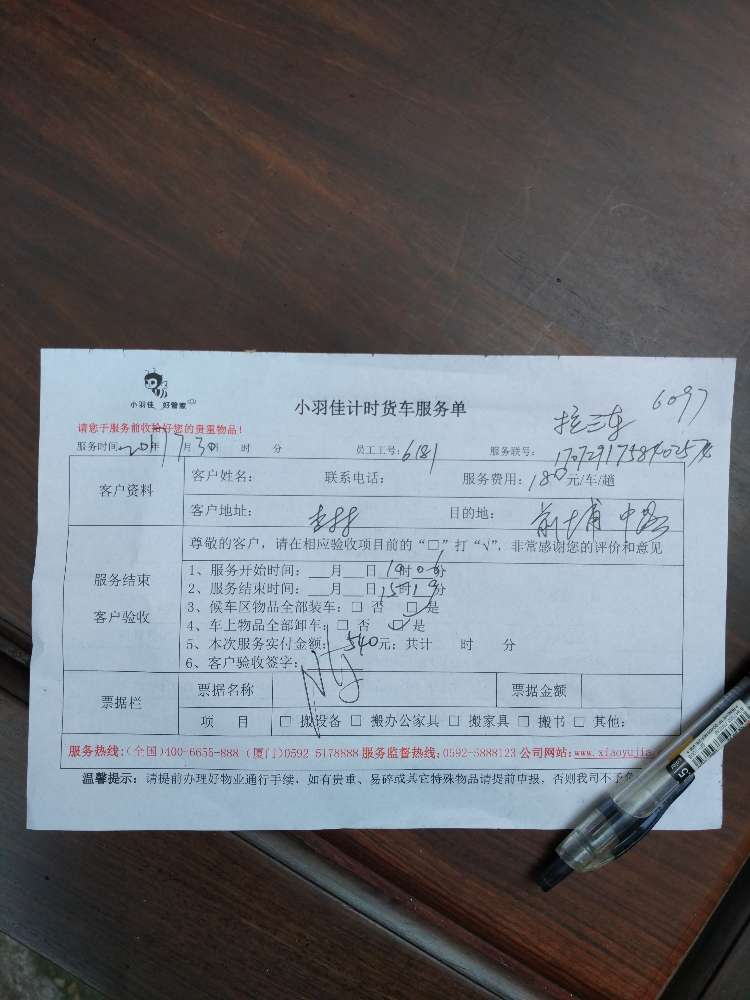 小羽佳 好管家
小羽佳计时货车服务单
6097
请您于服务前收给好您的贵重物品!
服务时间: 年 月 日 时 分 员工工号: 6181 服务联号:
客户资料
客户姓名: 联系电话: 服务费用: 180 元/车/趟
客户地址: 目的地:
服务结束
客户验收
尊敬的客户，请在相应验收项目前的“□”打“√”，非常感谢您的评价和意见
1、服务开始时间: 月 日 时 分
2、服务结束时间: 月 日 15时19分
3、候车区物品全部装车: □ 否 □ 是
4、车上物品全部卸车: □ 否 □ 是
5、本次服务实付金额: 540 元; 共计 时 分
6、客户验收签字:
票据栏
票据名称 票据金额
项 目 □ 搬设备 □ 搬办公家具 □ 搬家具 □ 搬书 □ 其他:
服务热线:(全国)400-6655-888 (厦门)0592 5178888 服务监督热线: 0592-5888123 公司网站: www.xiaoyujia
温馨提示: 请提前办理好物业通行手续，如有贵重、易碎或其它特殊物品请提前申报，否则我司不予